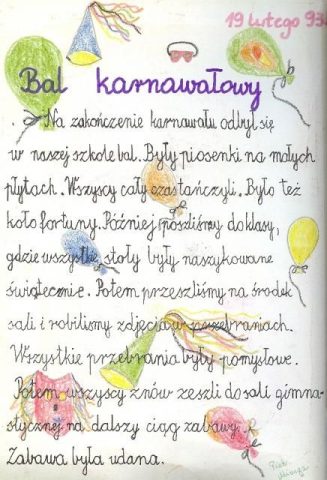 19 lutego 93
Bal karnawałowy
Na zakończenie karnawału odbył się
w naszej szkole bal. Były piosenki na małych
płytach. Wszyscy cały czas tańczyli. Było też
koło fortuny. Później poszliśmy do klasy,
gdzie wszystkie stoły były naszykowane
świątecznie. Potem przeszliśmy na środek
sali i robiliśmy zdjęcia w przebraniach.
Wszystkie przebrania były pomysłowe.
Potem wszyscy znów zeszli do sali gimna-
stycznej na dalszy ciąg zabawy.
Zabawa była udana.